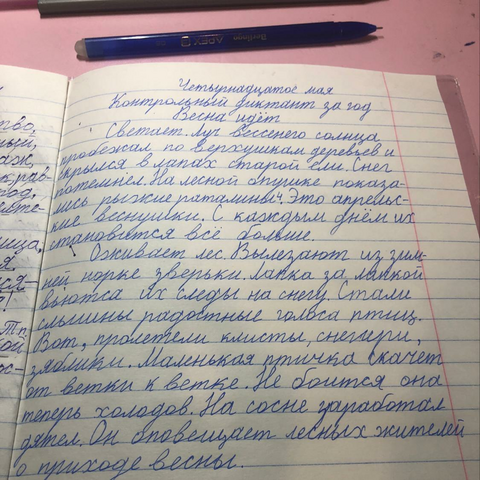 Berlingo APEX
Четырнадцатое мая
Контрольный диктант за год
Весна идёт
Светает. Луч весенего солнца
пробежал по верхушкам деревьев и
скрылся в лапах старой ели. Снег
потемнел. На лесной опушке показа-
лись рыжие проталины. Это апрельс-
кие веснушки. С каждым днём их
становится всё больше.
Оживает лес. Вылезают из зим-
ней норке зверьки. Лапка за лапкой
вьются их следы на снегу. Стали
слышны радостные голоса птиц.
Вот, пролетели клисты, снегири,
зяблики. Маленькая птичка скачет
от ветки к ветке. Не боится она
теперь холодов. На сосне заработал
дятел. Он оповещает лесных жителей
о приходе весны.